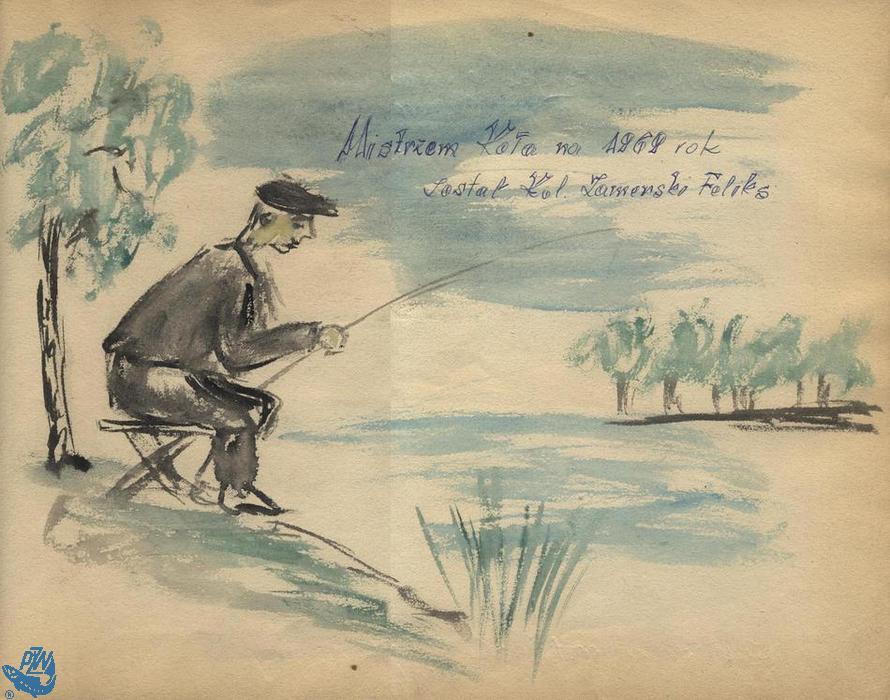 Mistrzem Koła na 1969 rok
został Kol. Zamerski Feliks
PZW
®